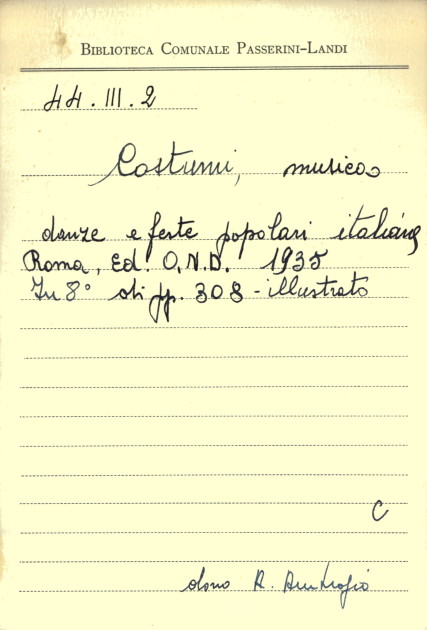 BIBLIOTECA COMUNALE PASSERINI-LANDI
44.III.2
Costumi, musica
danze e feste popolari italiane
Roma, Ed. O.N.D. 1935
In 8° di pp. 308 - illustrato
C
dono R.